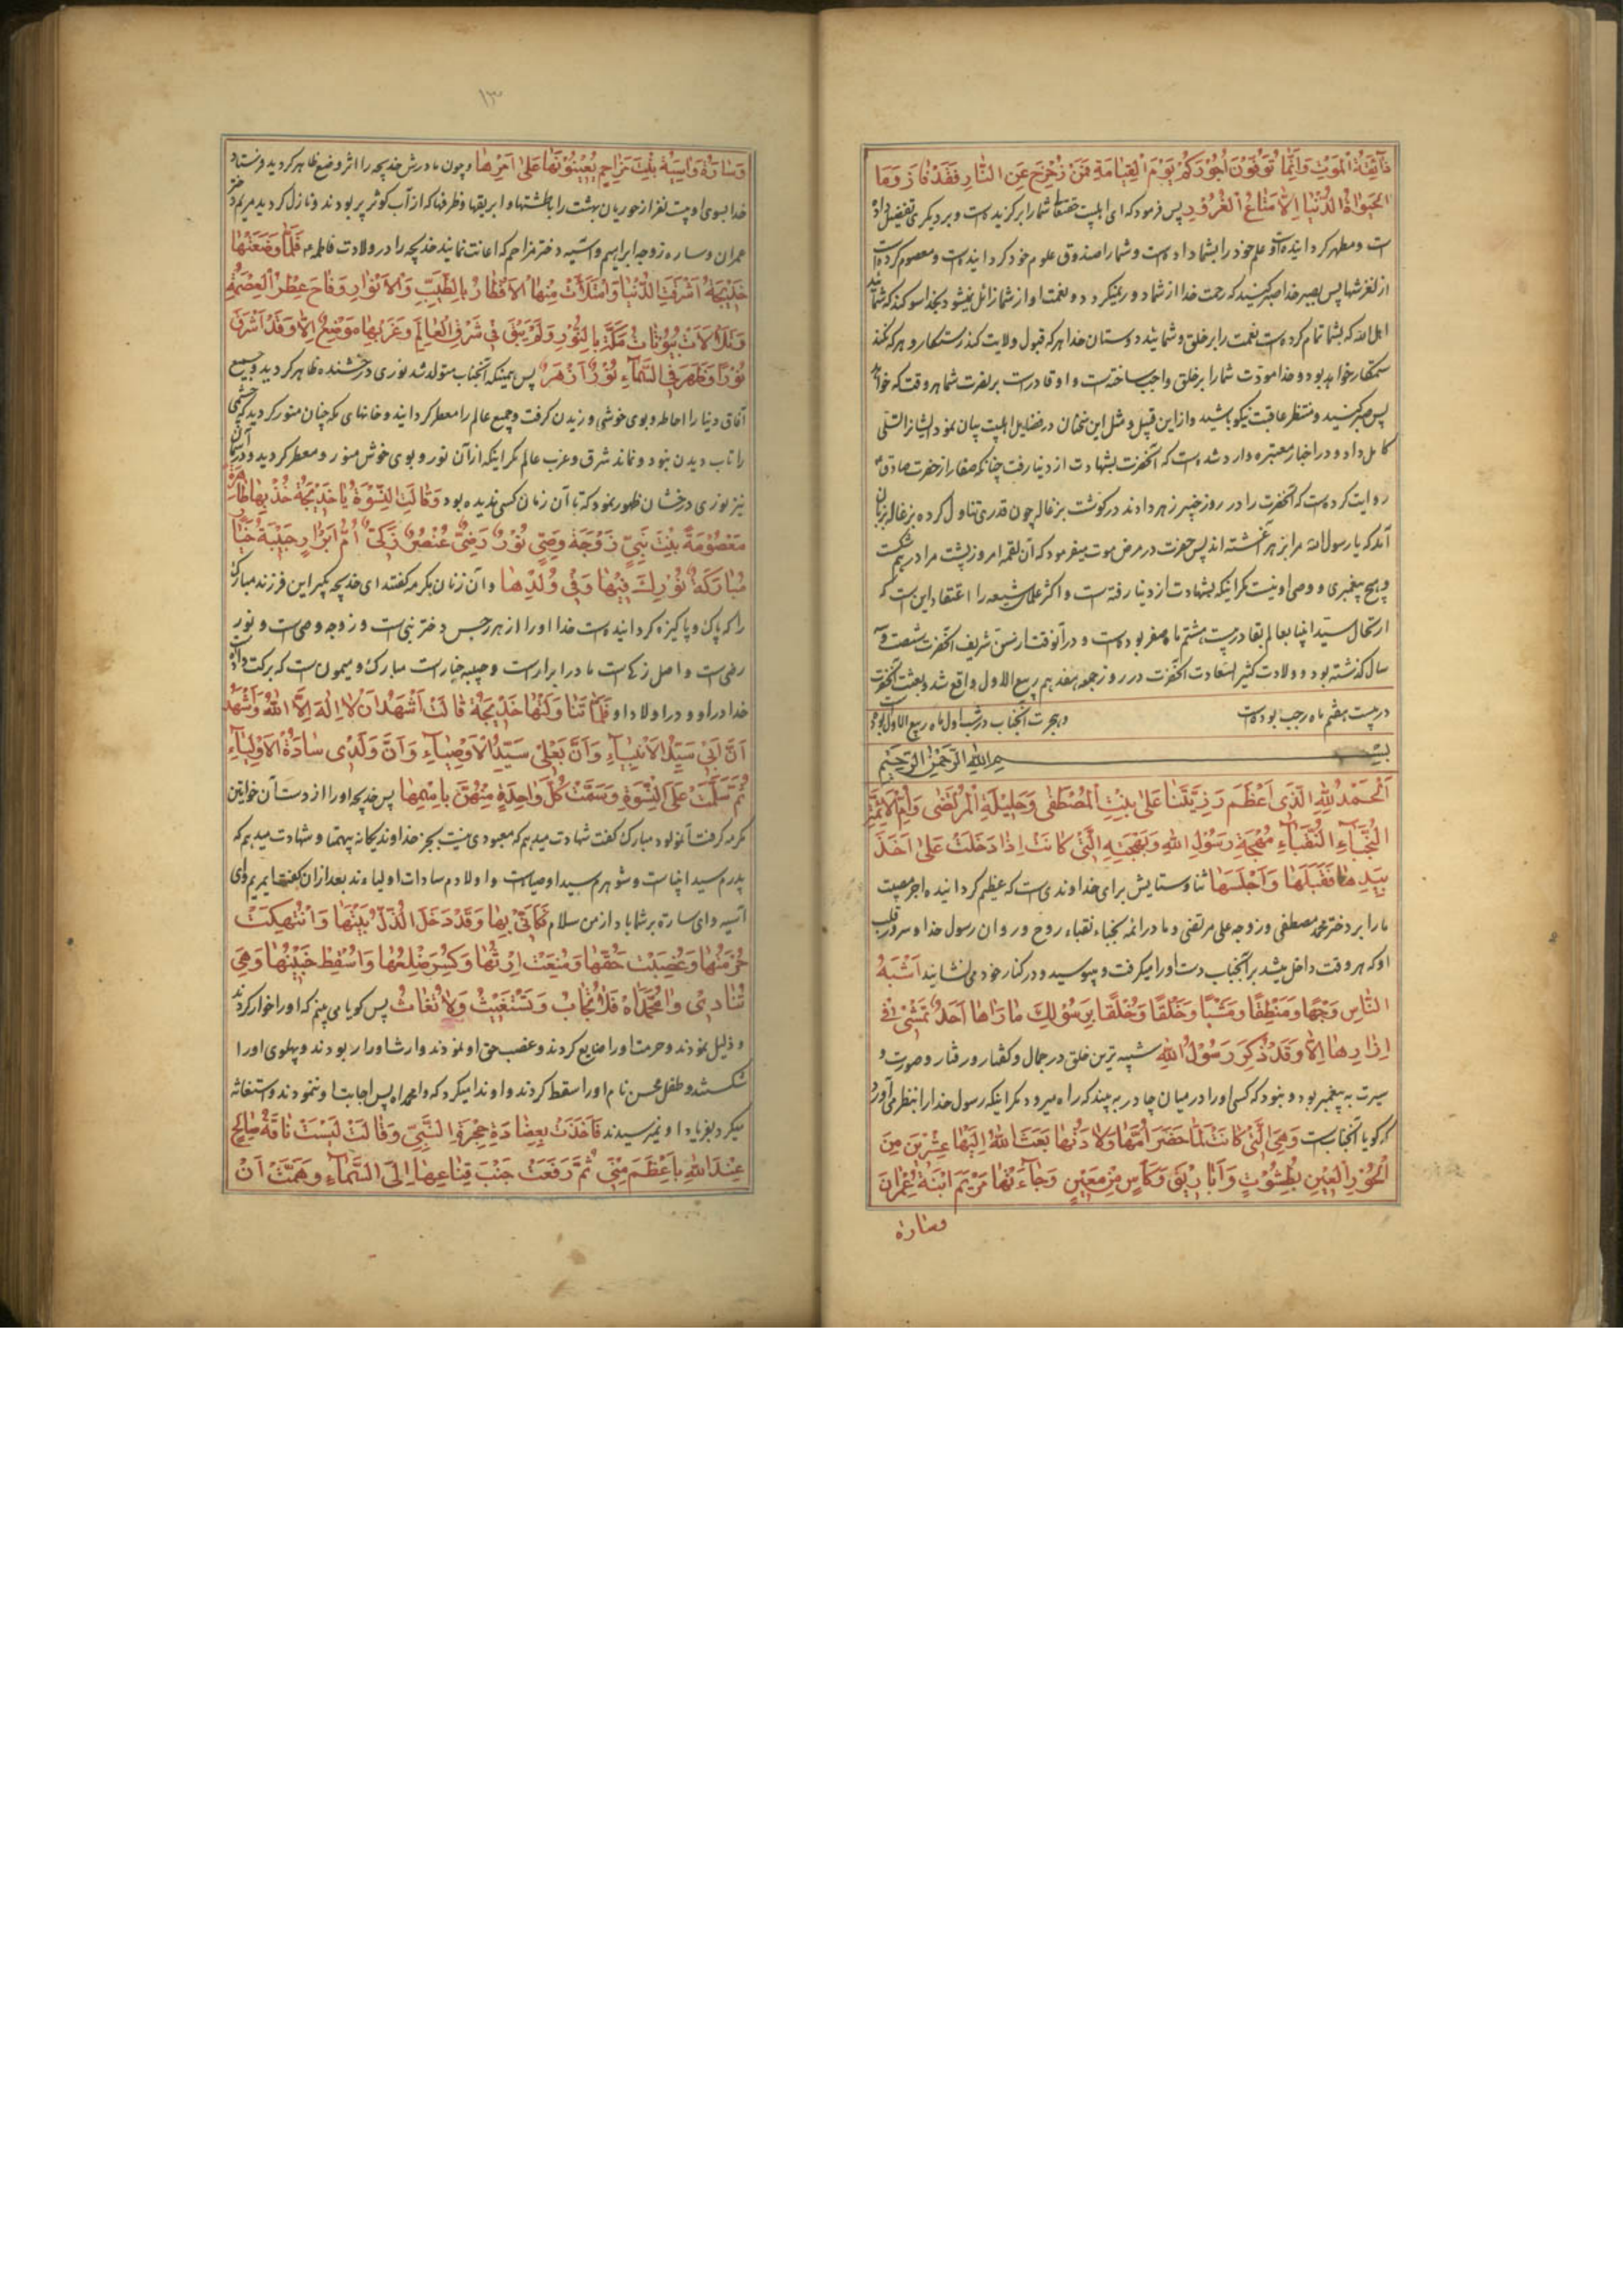 ذَآئِقَةُ الْمَوْتِ وَاِنَّمَا تُوَفَّوْنَ اُجُوْرَكُمْ يَوْمَ الْقِيٰامَةِ فَمَنْ زُحْزِحَ عَنِ النَّارِ فَقَدْ فٰازَ وَمَا
الْحَيٰوةُ الدُّنْيٰا اِلّٰا مَتٰاعُ الْغُرُوْرِ پس فرمود که ای اهلبیت حقتعالی شما را برگزیده است و بر دیگری تفضیل داده
است و مطهر گردانیده است و علم خود را بشما داده است و شما را صندوق علوم خود گردانیده است و معصوم کرده است
از لغزشها پس بصبر خدا صبر کنید که رحمت خدا از شما دور نمیگردد و نعمت او از شما زائل نمیشود بخدا سوگند که شمائید
اهل الله که بشما تمام کرده است نعمت را بر خلق و شمائید دوستان خدا هر که قبول ولایت کند رستگار و هر که نکند
ستمکار خواهد بود و خدا مودت شما را بر خلق واجب ساخته است و او قادر است بر نصرت شما هر وقت که خواهد
پس صبر کنید و منتظر عاقبت نیکو باشید و از این قبیل و مثل این سخنان در فضایل اهلبیت بیان نمود ایشانرا تسلی
کامل داد و در اخبار معتبره وارد شده است که آنحضرت بشهادت از دنیا رفت چنانکه صفار از حضرت صادق
روایت کرده است که آنحضرت را در روز خیبر زهر دادند در گوشت بزغاله چون قدری تناول کرد بزغاله بزبان
آمد که یا رسول الله مرا بزهر آغشته اند پس حضرت در مرض موت میفرمود که آن لقمه امروز پشت مرا در هم شکست
و هیچ پیغمبری و وصی او نیست مگر اینکه بشهادت از دنیا رفته است و اکثر علمای شیعه را اعتقاد این است که
ارتحال سید انبیا بعالم بقا در بیست هشتم ماه صفر بوده است و در آنوقت از سن شریف آنحضرت شصت و سه
سال گذشته بود و ولادت کثیر السعادت آنحضرت در روز جمعه هفدهم ربیع الاول واقع شد و بعثت آنحضرت
در بیست هفتم ماه رجب بوده است و هجرت آنجناب در شب اول ماه ربیع الاول بود
بسم الله الرحمن الرحیم
اَلْحَمْدُ لِلّٰهِ الَّذِى اَعْظَمَ رَزِيَّتَنَا عَلٰى بِنْتِ الْمُصْطَفٰى وَحَلِيْلَةِ الْمُرْتَضٰى وَاُمِّ الْاَئِمَّةِ
النُّجَبَآءِ النُّقَبَآءِ مُهْجَةِ رَسُوْلِ اللهِ وَبَهْجَتِهِ الَّتِى كَانَتْ اِذٰا دَخَلَتْ عَلٰى اَخَذَ
بِيَدِهٰا فَقَبَّلَهٰا وَاَجْلَسَهٰا ثنا و ستایش برای خداوندی است که عظیم گردانیده اجر مصیبت
ما را بر دختر محمد مصطفی و زوجه علی مرتضی و مادر ائمه نجباء نقباء روح و روان رسول خدا و سرور قلب
او که هر وقت داخل میشد بر آنجناب دست او را میگرفت و میبوسید و در کنار خود می نشانید اَشْبَهُ
النّٰاسِ وَجْهًا وَمَنْطِقًا وَمَشْيًا وَخَلْقًا وَخُلْقًا بِرَسُوْلِكَ مٰا رَاٰهٰا اَحَدٌ تَمْشِىْ فِى
اِزٰارِهٰا اِلّٰا وَقَدْ ذَكَرَ رَسُوْلَ اللهِ شبیه ترین خلق در جمال و گفتار و رفتار و صورت و
سیرت به پیغمبر بود و نبود که کسی او را در میان چادر به بیند که راه میرود مگر اینکه رسول خدا را بنظر می آورد
که گویا آنجناب است وَهِىَ الَّتِى كٰانَتْ لَمّٰا حَضَرَ اُمَّهٰا وِلٰادَتُهٰا بَعَثَ اللهُ اِلَيْهٰا عِشْرِيْنَ مِنَ
الْحُوْرِ الْعِيْنِ بِطُشُوْتٍ وَاَبٰارِيْقَ وَكَأْسٍ مِنْ مَعِيْنٍ وَجٰآءَتْهٰا مَرْيَمُ ابْنَةُ عِمْرٰانَ
وسارة
١٣
وَسٰارَةُ وَآسِيَةُ بِنْتُ مَزٰاحِمٍ يُعِيْنُوْنَهٰا عَلٰى اَمْرِهٰا و چون مادرش خدیجه را اثر وضع ظاهر گردید فرستاد
خدا بسوی او بیست نفر از حوریان بهشت را با طشتها و ابریقها و ظرفها که از آب کوثر پر بودند و نازل گردید مریم دختر
عمران و ساره زوجه ابراهیم و آسیه دختر مزاحم که اعانت نمایند خدیجه را در ولادت فاطمه فَلَمّٰا وَضَعَتْهٰا
خَدِيْجَةُ اَشْرَقَتِ الدُّنْيٰا وَامْتَلَأَتْ مِنْهَا الْاَقْطٰارُ بِالطِّيْبِ وَالْاَنْوٰارِ وَفٰاحَ عِطْرُ الْعِصْمَةِ
وَتَلَأْلَأَتْ بُيُوْتٰاتُ مَكَّةَ بِالنُّوْرِ وَلَمْ يَبْقَ فِى شَرْقِ الْعٰالَمِ وَغَرْبِهٰا مَوْضِعٌ اِلّٰا وَقَدْ اَشْرَقَ
نُوْرًا وَظَهَرَ فِى السَّمٰآءِ نُوْرٌ اَزْهَرُ پس همینکه آنجناب متولد شد نوری درخشنده ظاهر گردید و جمیع
آفاق دنیا را احاطه و بوی خوشی وزیدن گرفت و جمیع عالم را معطر گردانید و خانهای مکه چنان منور گردید که چشمی
را تاب دیدن نبود و نماند شرق و غرب عالم مگر اینکه از آن نور و بوی خوش منور و معطر گردید و در آسمان
نیز نوری درخشان ظهور نمود که تا آن زمان کسی ندیده بود وَقٰالَتِ النِّسْوَةُ يٰا خَدِيْجَةُ خُذِيْهٰا طٰاهِرَةً
مَعْصُوْمَةً بِنْتَ نَبِىٍّ زَوْجَةَ وَصِىٍّ نُوْرٌ رَضِىٌّ عُنْصُرٌ زَكِىٌّ اُمُّ اَبْرٰارٍ حَبِيْبَةُ
مُبٰارَكَةٌ بُوْرِكَ فِيْهٰا وَفِى وُلْدِهٰا و آن زنان مکرمه گفتند ای خدیجه بگیر این فرزند مبارک
را که پاک و پاکیزه گردانیده است خدا او را از هر رجس دختر نبی است و زوجه وصی است و نور
رضی است و اصل زکی است مادر ابرار است و حبیبه جبار است مبارک و میمون است که برکت داده
خدا در او و در اولاد او فَلَمّٰا تَنٰاوَلَتْهٰا خَدِيْجَةُ قٰالَتْ اَشْهَدُ اَنْ لٰا اِلٰهَ اِلَّا اللهُ وَاَشْهَدُ
اَنَّ اَبِىْ سَيِّدُ الْاَنْبِيٰآءِ وَاَنَّ بَعْلِىْ سَيِّدُ الْاَوْصِيٰآءِ وَاَنَّ وُلْدِى سٰادَةُ الْاَوْلِيٰآءِ
ثُمَّ سَلَّمَتْ عَلَى النِّسْوَةِ وَسَمَّتْ كُلَّ وٰاحِدَةٍ مِنْهُنَّ بِاسْمِهٰا پس خدیجه او را از دست آن خواتین
مکرمه گرفت آنمولود مبارک گفت شهادت میدهم که معبودی نیست بجز خداوند یگانه بیهمتا و شهادت میدهم که
پدرم سید انبیا است و شوهرم سید اوصیاست و اولادم سادات اولیاءند بعد از آن گفت ایمریم و ای
آسیه و ای ساره بر شما باد از من سلام فَكَاَنِّىْ بِهٰا وَقَدْ دَخَلَ الذُّلُّ بَيْتَهٰا وَانْتُهِكَتْ
حُرْمَتُهٰا وَغُصِبَتْ حَقُّهٰا وَمُنِعَتْ اِرْثُهٰا وَكُسِرَ ضِلْعُهٰا وَاُسْقِطَ جَنِيْنُهٰا وَهِىَ
تُنٰادِىْ وٰا مُحَمَّدٰاهْ فَلٰا تُجٰابُ وَتَسْتَغِيْثُ وَلٰا تُغٰاثُ پس گویا می بینم که او را خوار کردند
و ذلیل نمودند و حرمت او را ضایع کردند و غصب حق او نمودند و ارث او را ربودند و پهلوی او را
شکستند و طفل محسن نام او را سقط کردند و او ندا میکرد که وا محمداه پس اجابت او ننمودند و استغاثه
میکرد بفریاد او نمیرسیدند فَاَخَذَتْ بِعِضٰادَةِ حُجْرَةِ النَّبِىِّ وَقٰالَتْ لَيْسَتْ نٰاقَةُ صٰالِحٍ
عِنْدَ اللهِ بِاَعْظَمَ مِنِّىْ ثُمَّ رَفَعَتْ جَنْبَ قِنٰاعِهٰا اِلَى السَّمٰآءِ وَهَمَّتْ اَنْ